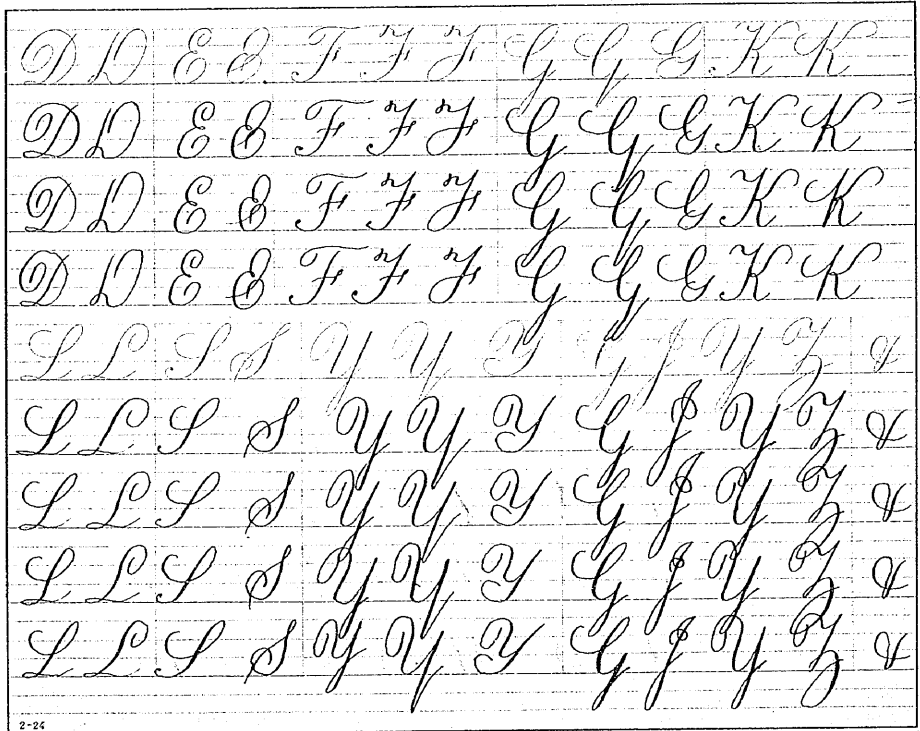 D D E E F F F G G G K K
D D E E F F F G G G K K
D D E E F F F G G G K K
D D E E F F F G G G K K
L L S S Y Y Y G J Y Z &
L L S S Y Y Y G J Y Z &
L L S S Y Y Y G J Y Z &
L L S S Y Y Y G J Y Z &
L L S S Y Y Y G J Y Z &
2-24